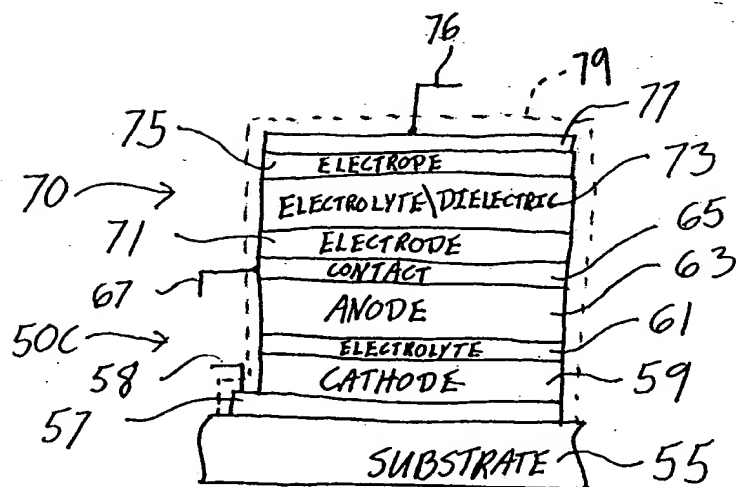 76
79
77
75 ELECTROPE
70 ELECTROLYTE\DIELECTRIC 73
71 ELECTRODE 65
CONTACT
67 ANODE 63
50C ELECTROLYTE 61
58 CATHODE 59
57
SUBSTRATE 55